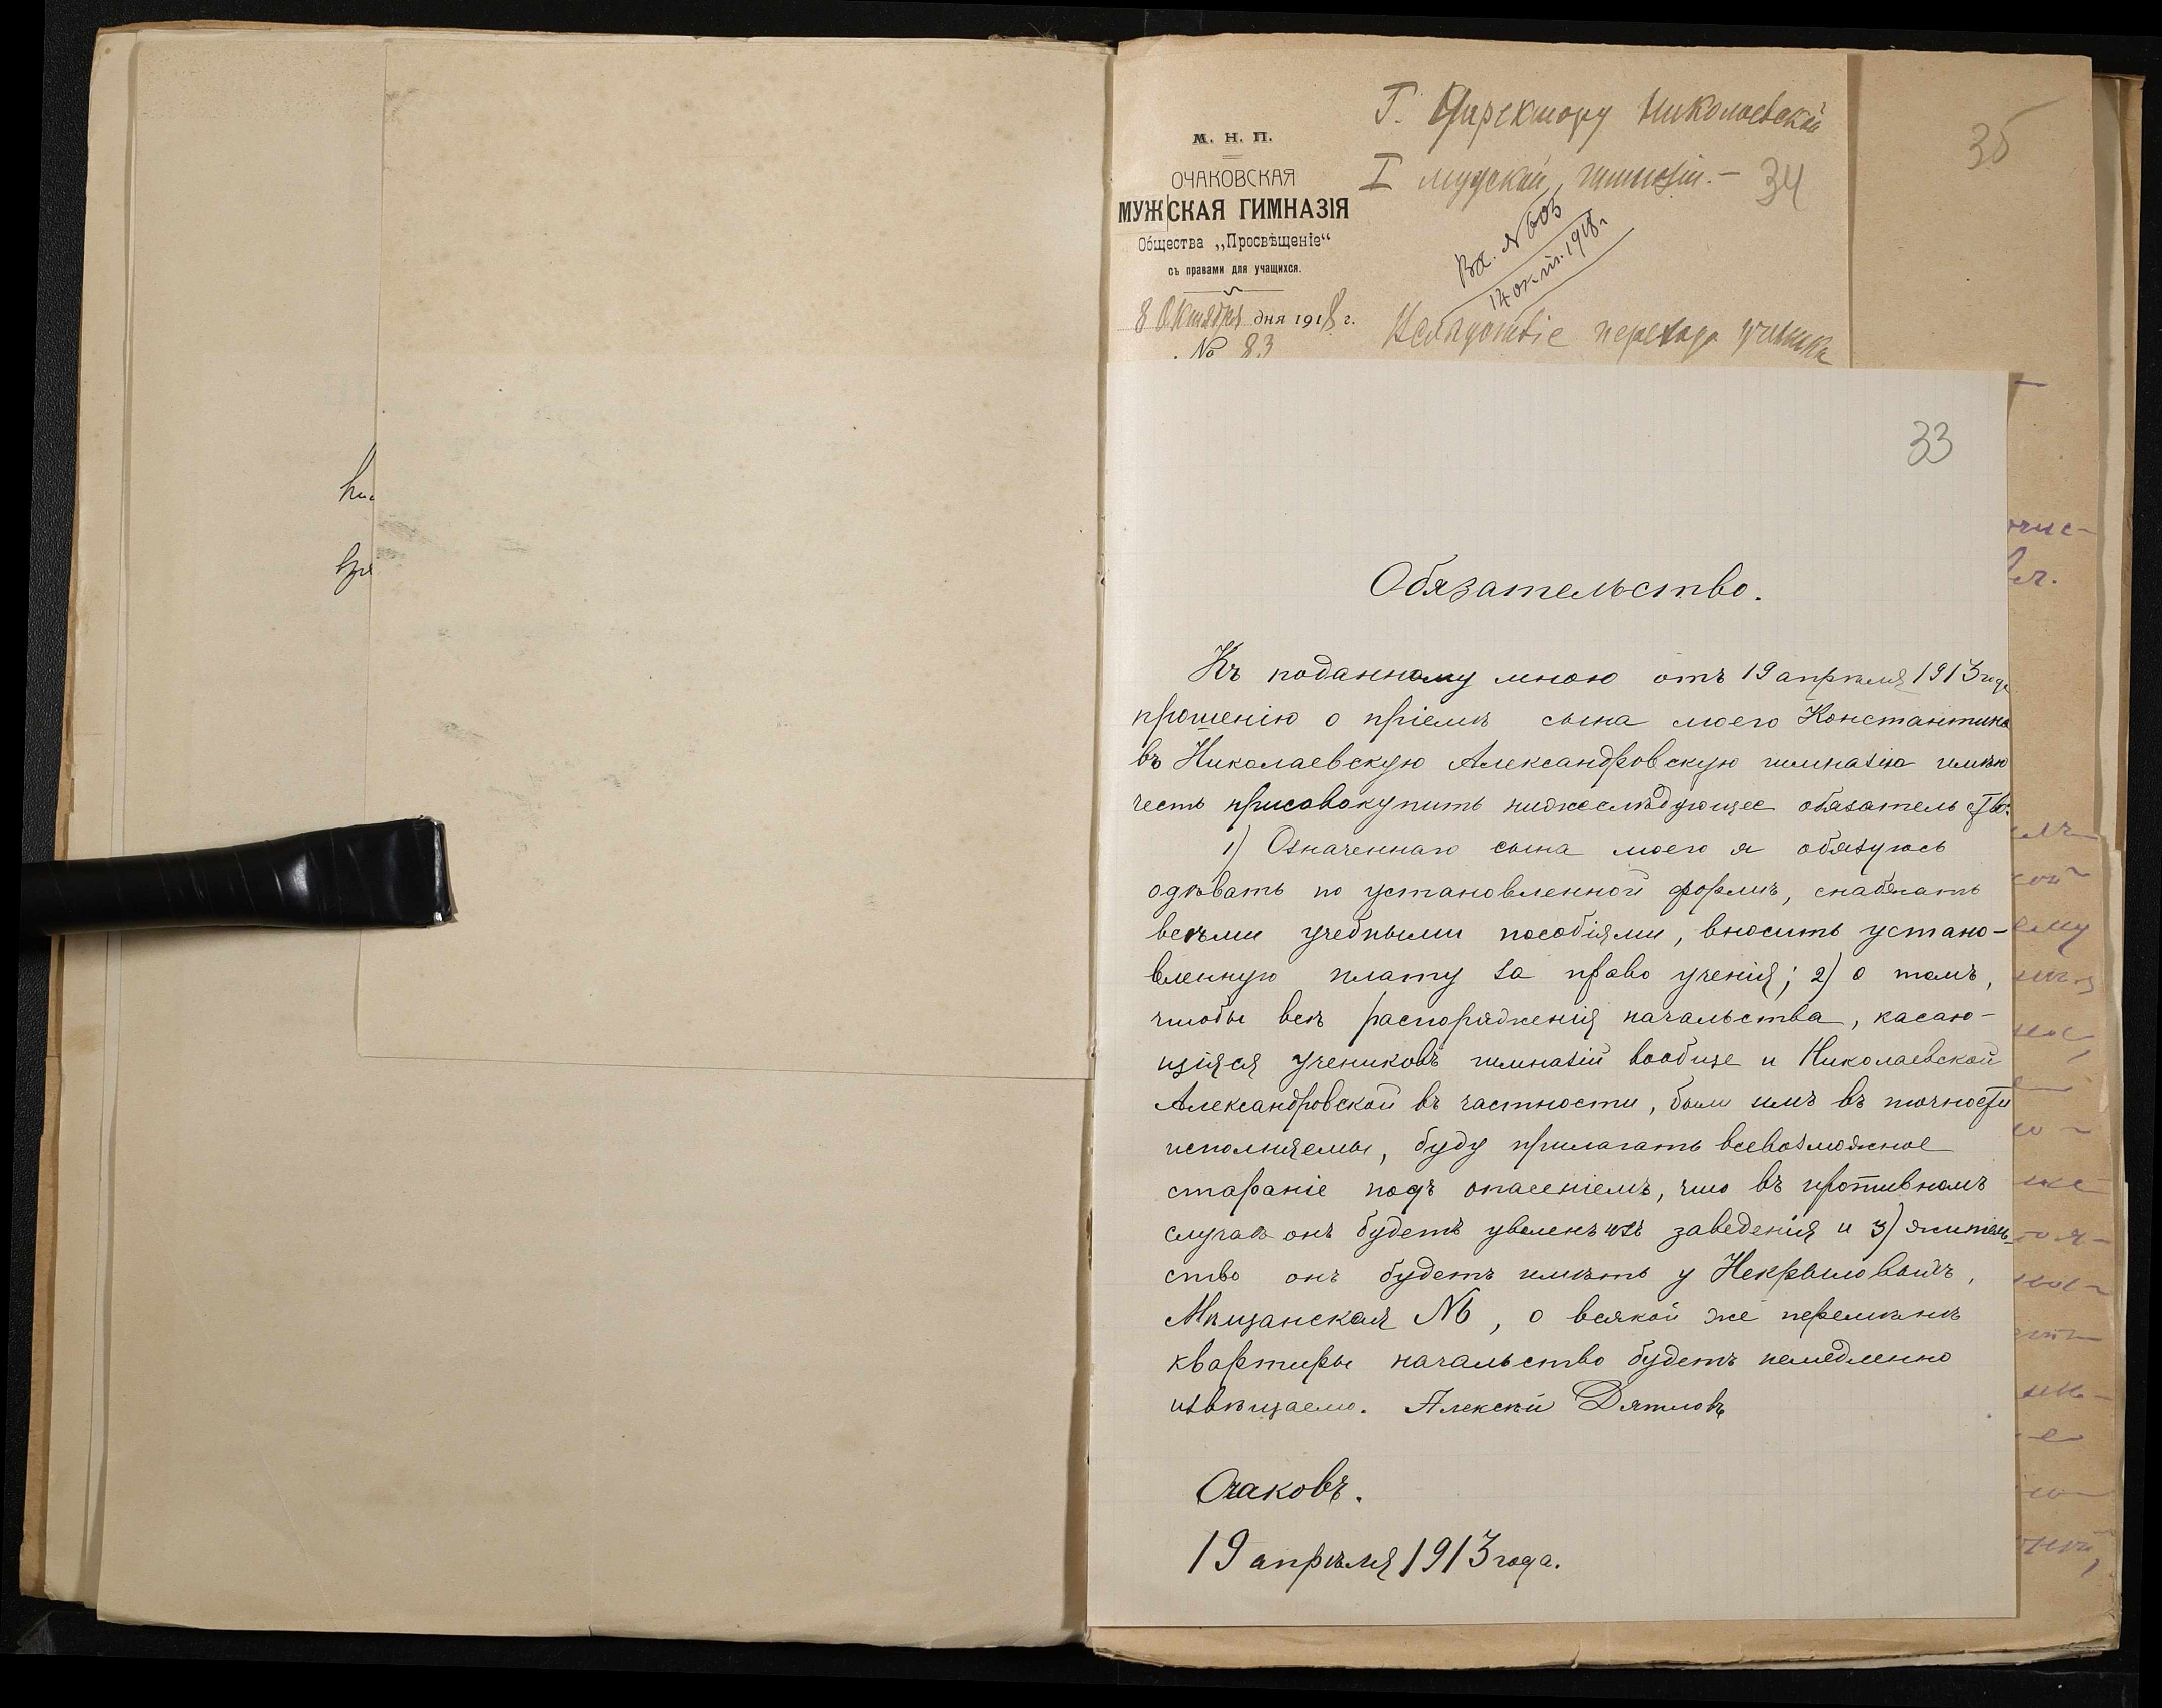 М. Н. П.
ОЧАКОВСКАЯ
МУЖСКАЯ ГИМНАЗІЯ
Общества „Просвѣщеніе“
съ правами для учащихся.
8 Октября дня 1918 г.
№ 83
Г. Директору Николаевской
I мужской гимназіи.—
34
35
Вх. № 603
14 окт. 1918 г.
Вслѣдствіе перехода ученика
33
Обязательство.
Къ поданному мною отъ 19 апрѣля 1913 года
прошенію о пріемѣ сына моего Константина
въ Николаевскую Александровскую гимназію имѣю
честь присовокупить нижеслѣдующее обязательство:
1) Означеннаго сына моего я обязуюсь
одѣвать по установленной формѣ, снабжать
всѣми учебными пособіями, вносить устано-
вленную плату за право ученія; 2) о томъ,
чтобы всѣ распоряженія начальства, касаю-
щіяся учениковъ гимназій вообще и Николаевской
Александровской въ частности, были имъ въ точности
исполняемы, буду прилагать всевозможное
стараніе подъ опасеніемъ, что въ противномъ
случаѣ онъ будетъ уволенъ изъ заведенія и 3) житель-
ство онъ будетъ имѣть у Некрыловыхъ,
Мѣщанская №6, о всякой же перемѣнѣ
квартиры начальство будетъ немедленно
извѣщаемо. Алексѣй Дятловъ
Очаковъ.
19 апрѣля 1913 года.